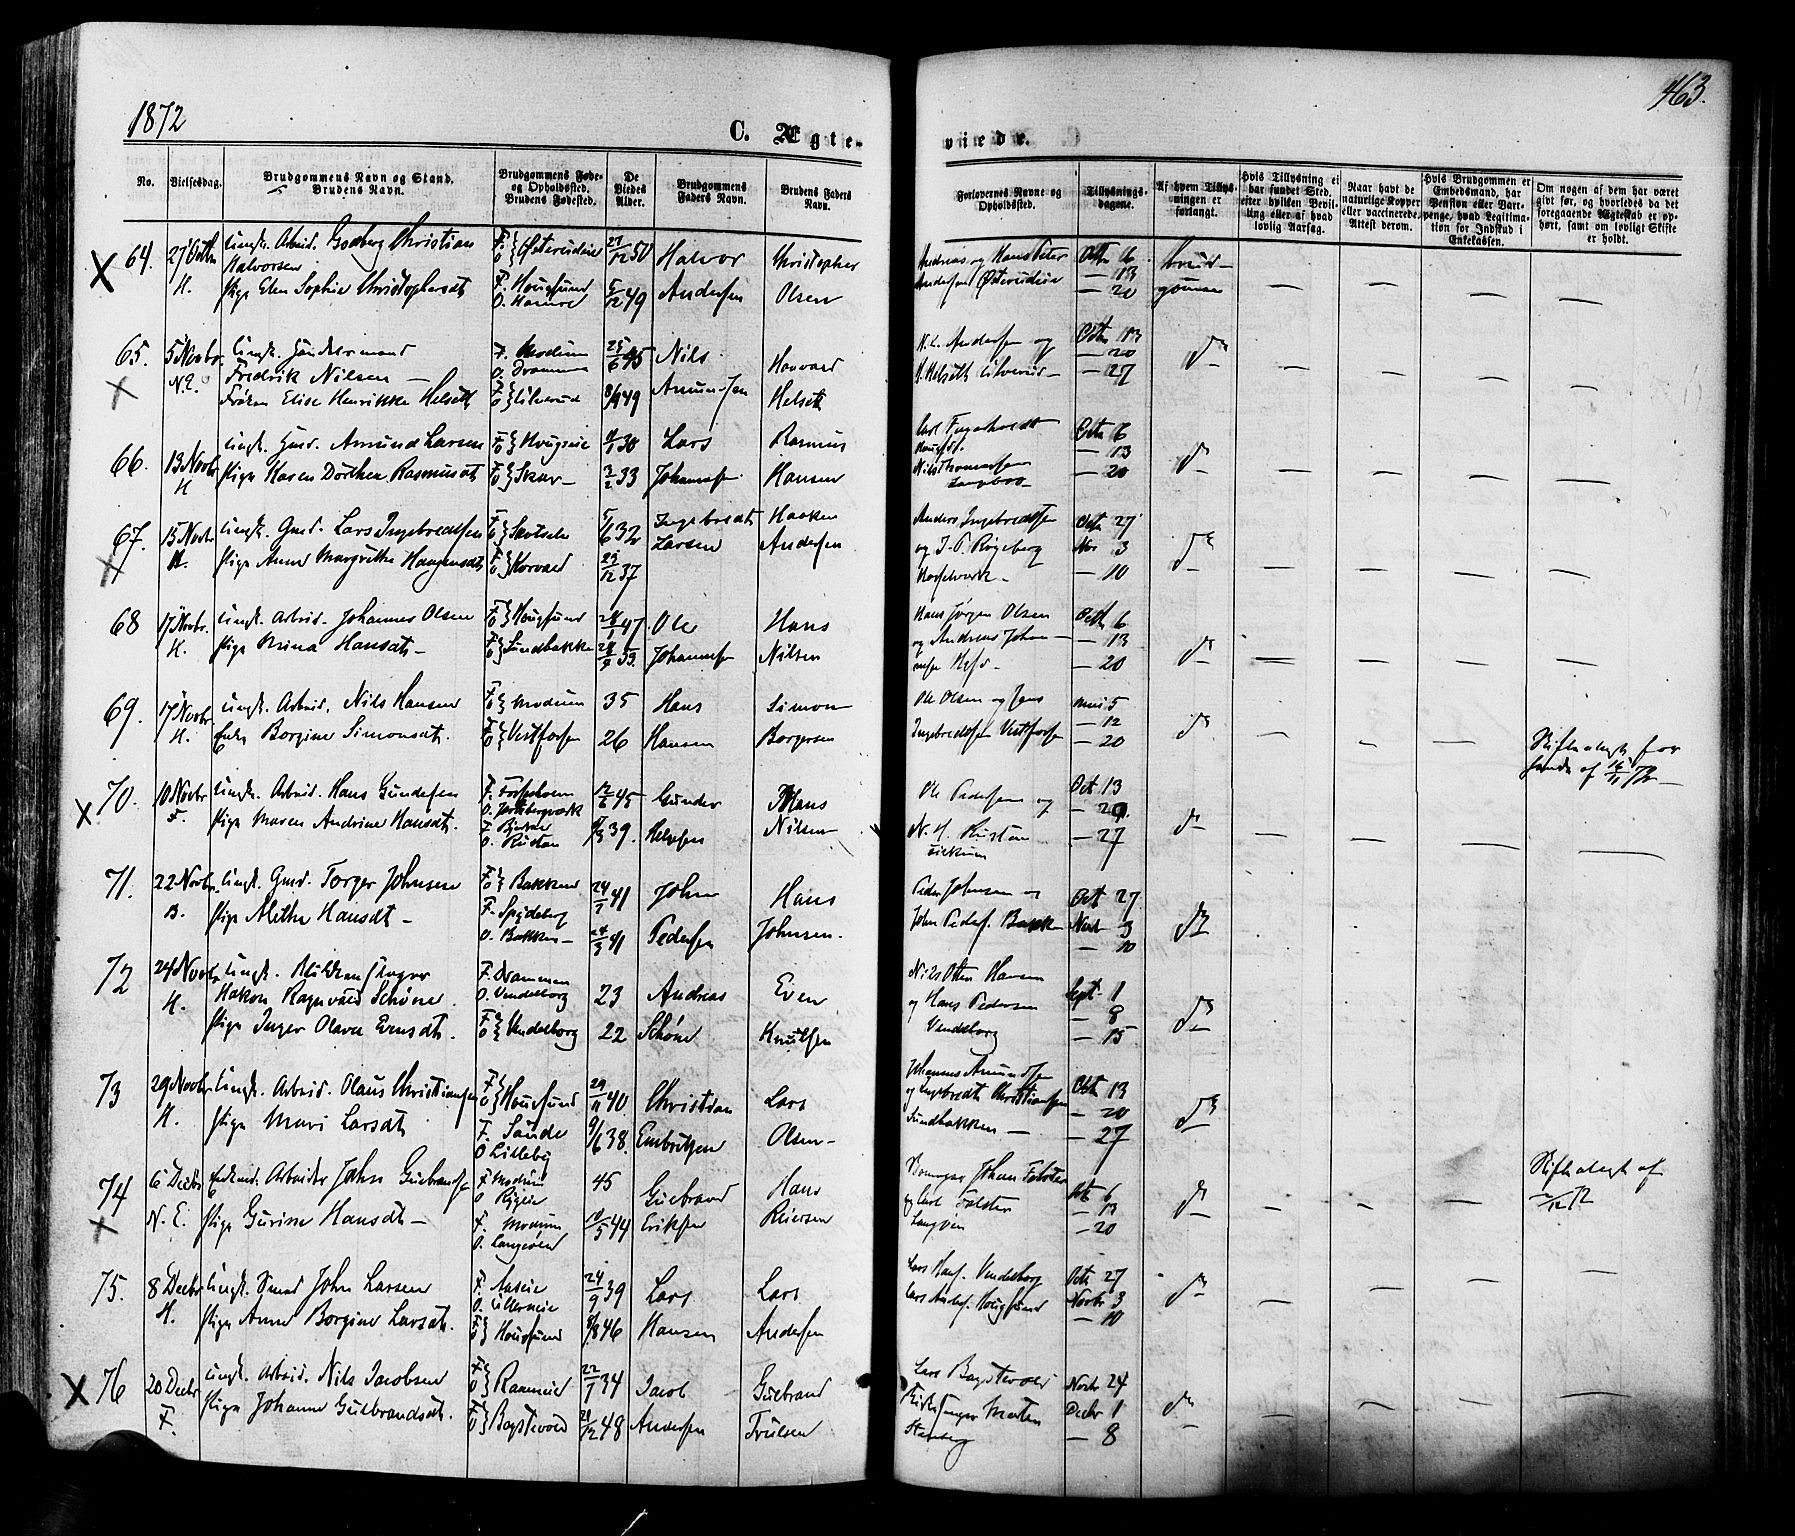 1872
463.
C. Ægte-
viede.
No.
Vielsesdag.
Brudgommens Navn og Stand.
Brudens Navn.
Brudgommens Føde-
og Opholdssted.
Brudens Fødested.
De
Viedes
Alder.
Brudgommens
Faders Navn.
Brudens Faders
Navn.
Forlovernes Navne og
Opholdssted.
Tillysnings-
dagene.
Af hvem Tillys-
ningen er
forlangt.
Hvis Tillysning ei
har fundet Sted,
efter hvilken Bevil-
ling eller af hvad
lovlig Aarsag.
Naar havt de
naturlige Kopper
eller vaccinerede.
Attest derom.
Hvis Brudgommen er
Embedsmand, har
Pension eller Vart-
penge, hvad Legitima-
tion for Indskud i
Enkekassen.
Om nogen af dem har været
gift før, og hvorledes da det
foregaaende Ægteskab er op-
hørt, samt om lovligt Skifte
er holdt.
64. 27 Octbr Ungk. Arbeid. Gudberg Christian
Halvorsen
H. Pige Elen Sophie Christophersdt
F. O. Østerudeie 27/12 50 Halvor Christopher
F. Hougsund 5/12 49 Andersen Olsen
Andreas og Hans Peter Octbr 6 brud-
Andersen Østerudeie — 13 gommen
— 20
65. 5 Novbr Ungk. Handelsmand
N.E. Fredrik Nilsen —
Frøken Elise Henrikke Helseth
F. Modum 25/6 45 Nils Haavard
O. Drammen
8/9 49 Amundsen Helseth
N. E. Andersen og Octbr 13 do
— 20
H. Helseth — 27
66. 13 Novbr Ungk. Gmd. Amund Larsen
H Pige Karen Dorthea Rasmusdt
F. O. Hougseie 30 Lars Rasmus
F. O. Skar — 2/2 33 Johannesen Hansen
Carl Fugerholdt Octbr 6
Hougsd. — 13
Nils Thomassen — 20 do
67. 15 Novbr Ungk. Gmd. Lars Ingebredtsen
H. Pige Anne Margrethe Haagensdt
F. O. Skotselv 5/6 32 Ingebredt Haaken
F. O. Korvald 29/12 37 Larsen Andersen
Anders Ingebredtsen Octbr 27
og J. P. Røgeberg Nov 3 do
Hasselværk — — 10
68 17 Novbr. Ungk. Arbeid. Johannes Olsen
H. Pige Mina Hansdt —
F. O. Hougsund 28/1 47 Ole Hans
F. O. Sundbakke 28/9 53. Johannesen Nilsen
Hans Jørgen Olsen Octbr 6
og Andreas Johan- — 13
nesen Hgsd. — 20 do
69. 17 Novbr Ungk. Arbeid. Nils Hansen
H. Enke Borgine Simonsdt.
F. O. Modum 35 Hans Simon
F. O. Vestfossen 26 Hansen Borgersen
Ole Olsen og Jens Mai 5
— 12 do
Ingebredtsen Vestfossen — 20
Skifteattest fore-
funden af 16/11 72 —
70. 10 Novbr Ungk. Arbeid. Hans Gundersen
F. Pige Maren Andrine Hansdt.
12/6 45 Gunder Hans
O. Rustan 39. Helgesen Nilsen
Ole Pedersen og Oct 13
— 20. do
N. H. Rustan — 27
71. 22 Novbr Ungk. Gmd. Torger Johnsen
B. Pige Alethe Hansdt —
F. O. Bakken 24/7 41 John Hans
F. Spydeberg
O. Bakken — 24/3 41 Pedersen Johnsen.
Peder Johnsen og Oct 27
John Peders. Bakk — Novbr 3 do
— 10
72 24 Novbr Ungk.
Hakon Ragnvald Schøne.
H. Pige Inger Olava Evensdt.
F. Drammen
O. Vendelborg 23 Andreas Even
F. O. Vendelborg 22 Schøne Knudsen
Nils Otter Hansen
og Hans Pedersen Sept 1
— 8 do
Vendelborg — 15
73 29 Novbr Ungk. Arbeid. Olaus Christiansen
H. Pige Mari Larsdt
F. O. Hougsund 29/11 40 Christian Lars
F. Sande 9/6 38. Embretsen Olsen —
O. Lilleby
Johannes Amundsen Octbr 13
og Ingebredt Christiansen — 20 do
Sundbakken — — 27
74 6 Decbr Arbeider John Gulbrandsen
N. E. Pige Gurine Hansdt —
F. Modum 45 Gulbrand Hans
F. Modum 10/5 44 Eriksen Reiersen
Johan Falster Octb 6
og Carl Falster — 13 do
— 20
Skifteattest af
2/12 72
75. 8 Decbr Ungk. Smed John Larsen
H. Pige Anne Borgine Larsdt.
24/9 39 Lars Lars
F. O. Hougsund 8/8 46 Hansen Andersen
Lars Hans. Vendelborg Octb 27
Lars Anders. Hougsund Novbr 3 do
— 10
76 20 Decbr Ungk. Arbeid. Nils Jacobsen
F. Pige Johanne Gulbrandsdt.
F. O. Rammeie 22/7 34 Jacob Gulbrand
F. O. Bagstevold 21/12 48 Andersen Trulsen
Lars Bagstevold Novbr 24
Kirkesanger Morten Decbr 1 do
Stenberg — 8